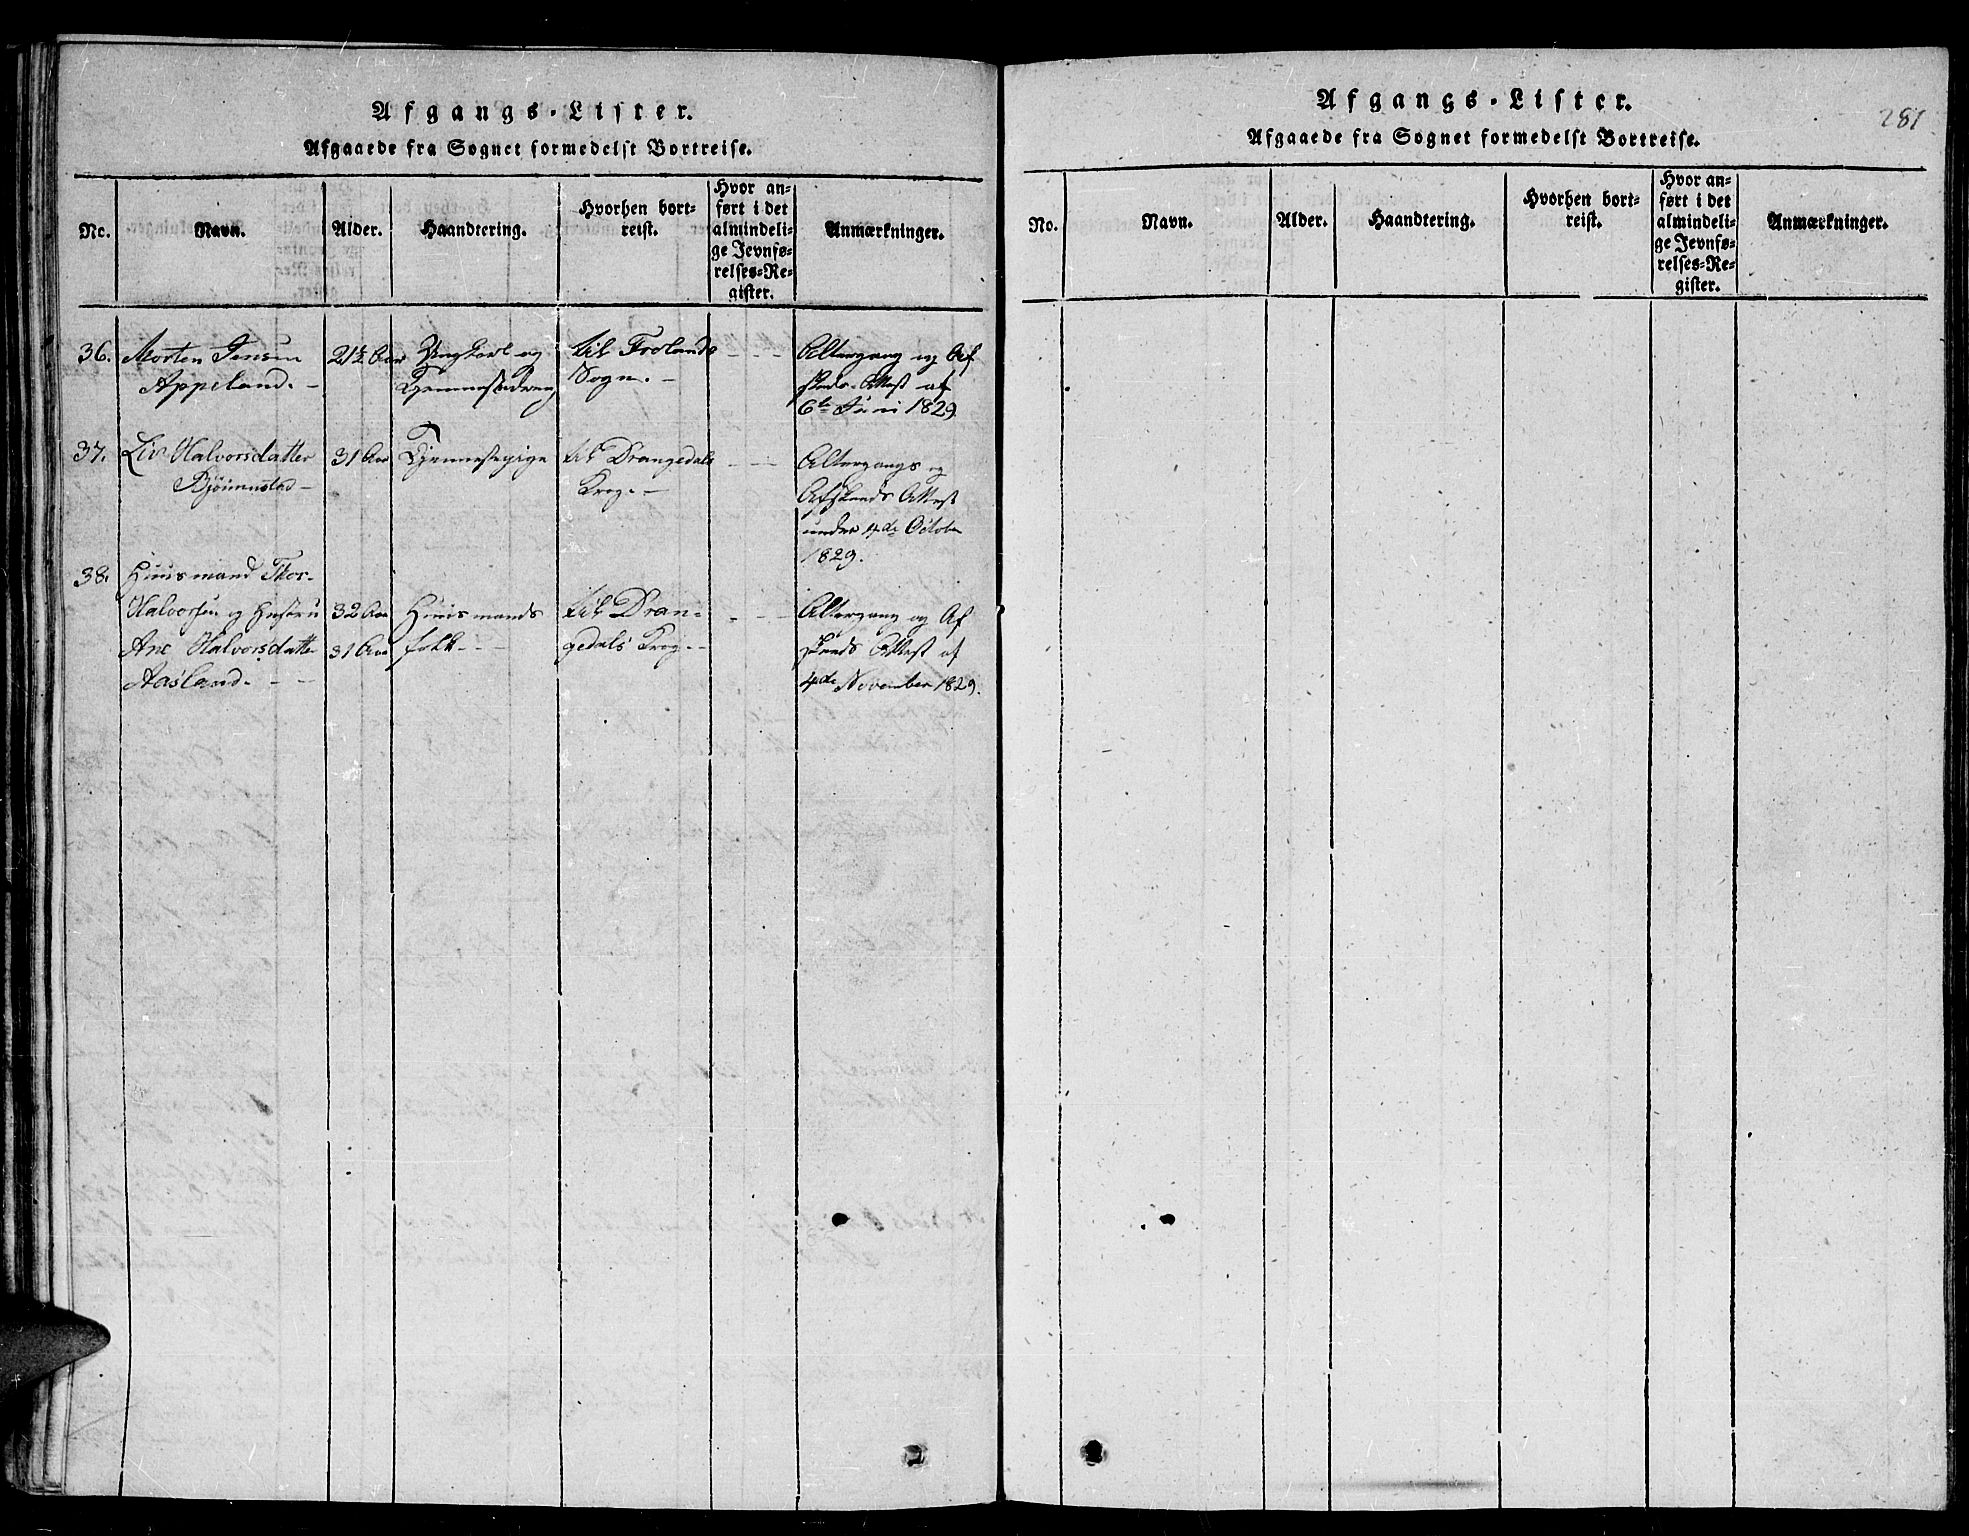 Afgangs-Lister.
Afgaaede fra Sognet formedelst Bortreise.
No.
Navn.
Alder.
Haandtering.
Hvorhen bort-
reist.
Hvor an-
ført i det
almindeli-
ge Jevnfø-
relses-Re-
gister.
Anmærkninger.
36.
Morten Jensen
Appeland. -
21½ Aar
Ungkarl og
Tjenestedreng
til Frolands
Sogn. -
- - -
Altergang og Af
skeds-Attest af
6te Juni 1829.
37.
Liv Halvorsdatter
Bjönnestad -
31 Aar
Tjenestepige
til Drangedals
Præg. -
- - -
Altergangs og
Afskeeds Attest
under 4de October
1829.
38.
Huusmand Thor-
Halvorsen og Hustru
Ane Halvorsdatter
Aasland. - -
32 Aar
31 Aar
Huusmands
folk - -
til Dran-
gedals Præg. -
- - -
Altergang og Af
skeeds Attest af
4de November 1829.
Afgangs-Lister.
281
Afgaaede fra Sognet formedelst Bortreise.
No.
Navn.
Alder.
Haandtering.
Hvorhen bort-
reist.
Hvor an-
ført i det
almindeli-
ge Jevnfø-
relses-Re-
gister.
Anmærkninger.